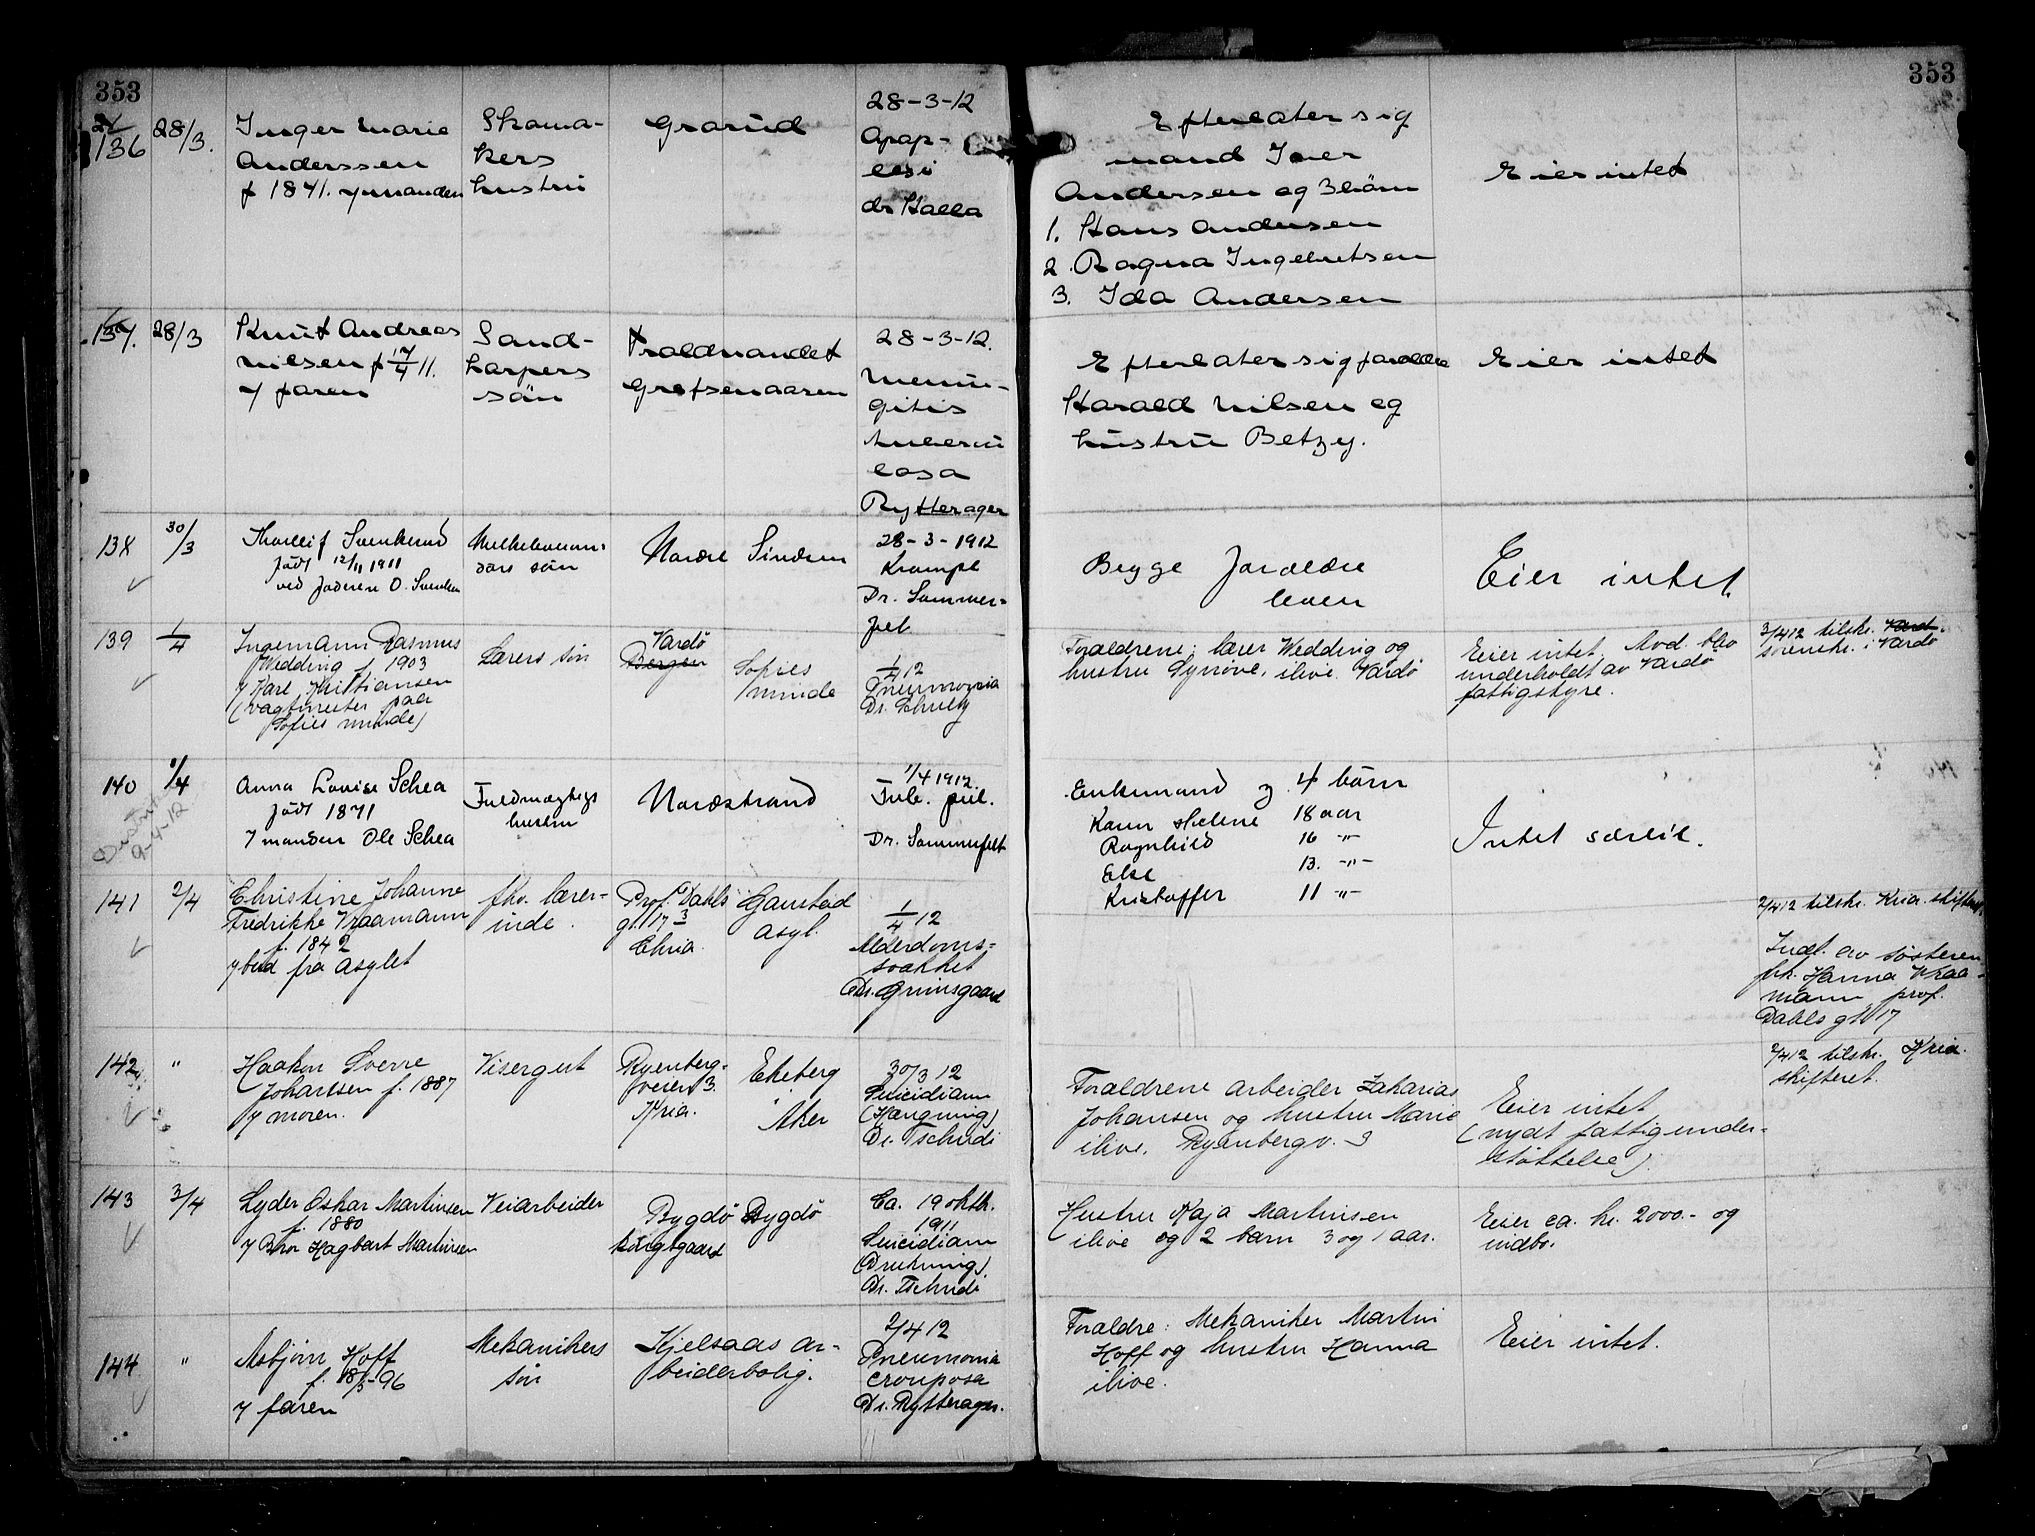 353
353
136
28/3.
Inger Marie
Anderssen
f 1841. v manden
Skoma-
kers
hustru
Grorud
28-3-12
Apop-
lexi
dr Kalla
Efterlater sig
mand Iver
Andersen og 3 börn
1. Hans Andersen
2. Ragna Ingebretsen
3. Ida Andersen
Eier intet
137.
28/3
Knut Andreas
Nilsen f 17/4 11.
v faren
Sand-
sön
Troldvandet
Grefsenaasen
28-3-12.
Menin-
gitis
tubercu
losa
Rytterager
Efterlater sig forældre
Harald Nilsen og
hustru Betzy.
Eier intet
138
30/3
Thorleif
född 12/11 1911
ved faderen O.
sön
Nordre Sindsen
28-3-1912
Krampe
Dr. Sommer-
felt
Begge forældre
lever
Eier intet.
139
1/4
Ingemann Rasmus
Wedding f. 1903
v Karl Kristiansen
(vagtmester paa
Sofies minde)
Lærers sön
Vardö
Bergen
Sofies
minde
1/4 12
Pneumonia
Dr. Schultz
Forældrene, lærer Wedding og
hustru Synöve, ilive. Vardö
Eier intet. Avd. blev
underholdt av Vardö
fattigstyre.
3/4 12 tilskr. Vard.
sorenskr. i Vardö
140
1/4
9-4-12
Anna Lovise Schea
född 1871
v manden Ole Schea
Fuldmægtigs
hustru
Nordstrand
1/4 1912.
Tub. pul.
Dr. Sommerfelt
Enkemand og 4 börn
Karen Helene 18 aar
Ragnhild 16 -"-
Else 13. -"-
Kristoffer 11 -"-
Intet særeie.
141
2/4
Christine Johanne
Fredrikke Vraamann
f. 1842
v bud fra asylet
fhv. lærer-
inde.
Prof. Dahls
gt. 17 3
Chria.
Gaustad
asyl.
1/4 12
Alderdoms-
svakhet
Dr. Grimsgaard
2/4 12 tilskr. Kria. skifteret.
Indt. av søsteren
frk. Hanna Vraa-
mann, prof.
Dahls gt. 17
142
"
Haakon Sverre
Johansen f. 1887
v moren.
Visergut
Ryenberg-
veien 3.
Kria.
Ekeberg
i Aker
30/3 12
Suicidium
(Hængning)
Dr. Tschudi
Forældrene arbeider Zakarias
Johansen og hustru Marie
ilive. Ryenbergv. 3
Eier intet
(nydt fattigunder-
støttelse)
2/4 12 tilskr. Kria.
skifteret.
143
3/4
Lyder Oskar Martinsen
f. 1880
v Bror Hagbart Martinsen
Veiarbeider
Bygdö
kongsgaard
Bygdö
Ca. 19 oktbr.
1911
Suicidium
(Drukning)
Dr. Tschudi
Hustru Kaja Martinsen
ilive og 2 barn 3 og 1 aar.
Eier ca. kr. 2000.- og
indbo.
144
"
Asbjørn Hoff
f. 18/5-96
v faren
Mekanikers
sön
Kjelsaas ar-
beiderbolig.
2/4 12
Pneumonia
crouposa
Dr. Rytterager.
Forældre: Mekaniker Martin
Hoff og hustru Hanna
ilive.
Eier intet.